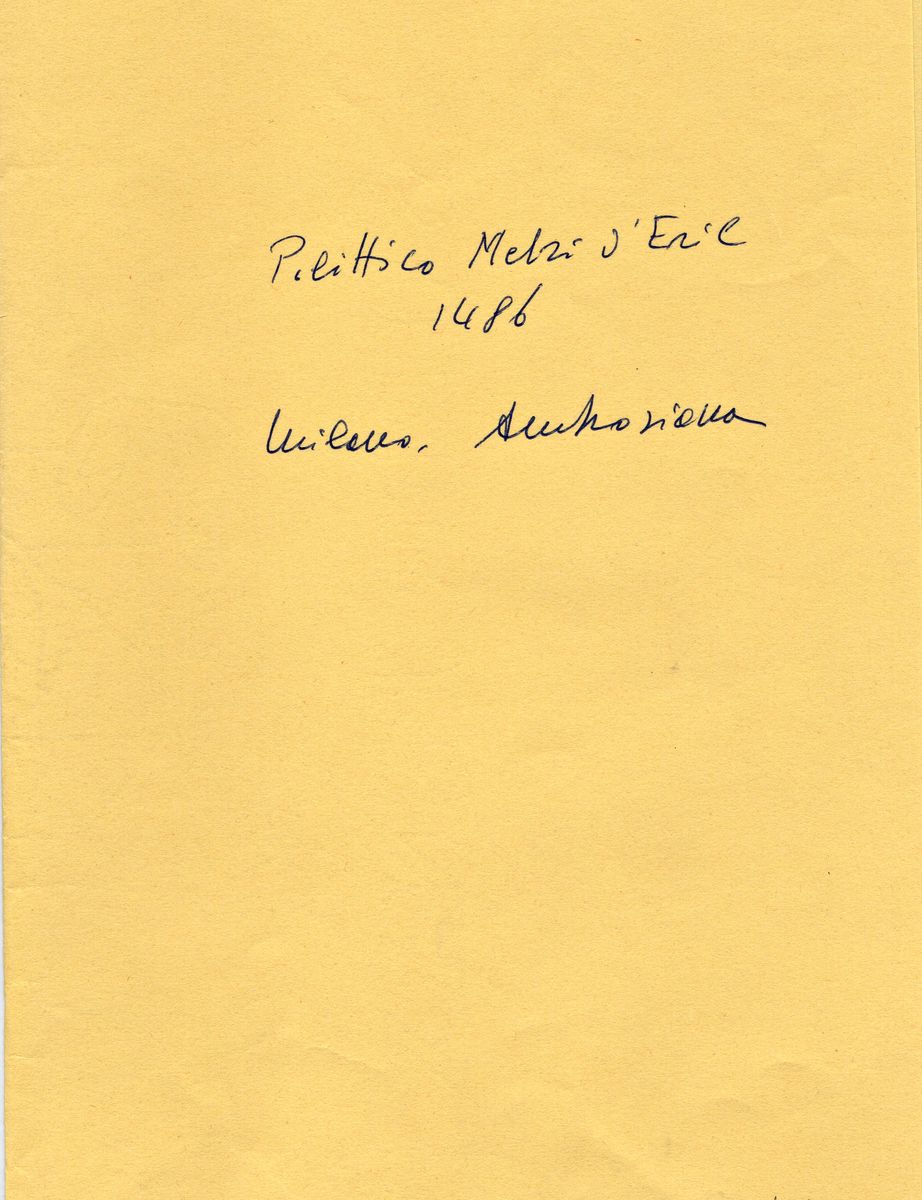 Polittico Melzi d'Eril
1486
Milano, Ambrosiana